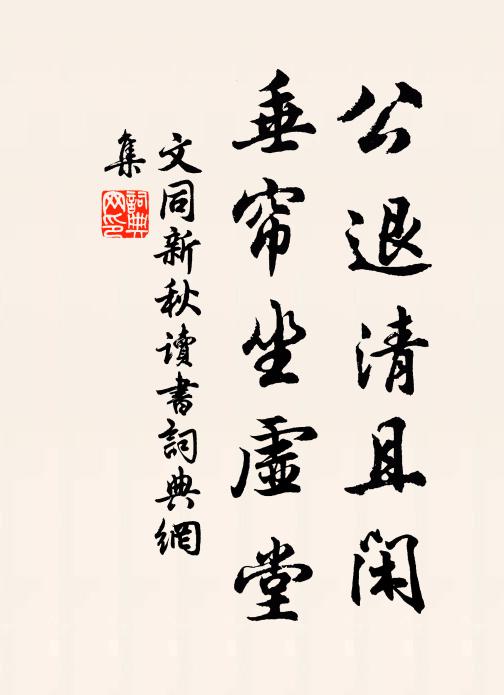 公退清且闲
垂帘坐虛堂
文同新秋讀書詞典網
集
詞典網印